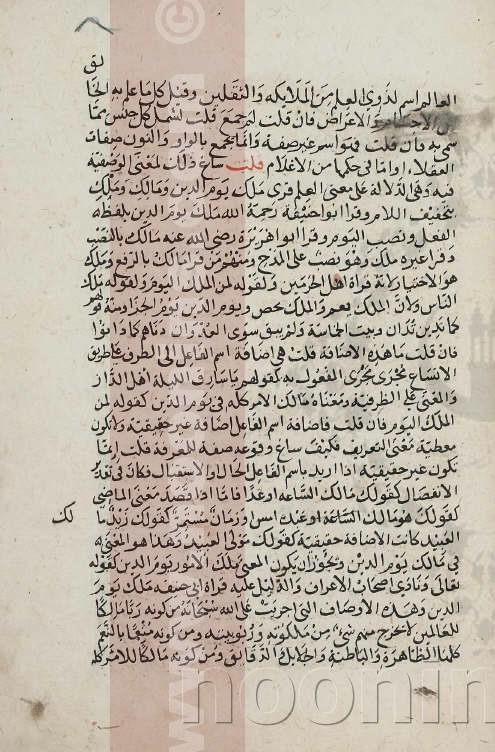 لق
العالم اسم لذوي العلم من الملائكة والثقلين وقيل كل ما علم به الخا
من الاجسام والاعراض فان قلت لم جمع قلت لتشمل كل جنس مما
سمي به فان قلت فهو اسم غير صفة وانما يجمع بالواو والنون صفات
العقلاء او ما في حكمها من الاعلام قلت ساغ ذلك لمعنى الوصفية
فيه وهي الدلالة على معنى العلم قرى ملك يوم الدين ومالك وملك
بتخفيف اللام وقرا ابو حنيفة رحمة الله ملك يوم الدين بلفظ
الفعل ونصب اليوم وقرا ابو هريرة رضي الله عنه مالك بالنصب
وقرا غيره ملك وهو نصب على المدح ومنهم من قرا مالك بالرفع وملك
هو الاختيار لانه قراة اهل الحرمين ولقوله لمن الملك اليوم ولقوله ملك
الناس ولان الملك يعم والملك يخص ويوم الدين يوم الجزا ومنه قولهم
كما تدين تدان وبيت الحماسة ولم يبق سوى العدوان دناهم كما دانوا
فان قلت ما هذه الاضافة قلت هي اضافة اسم الفاعل الى الظرف على طريق
الاتساع مجرى مجرى المفعول به كقولهم يا سارق الليلة اهل الدار
والمعنى على الظرفية ومعناه مالك الامر كله في يوم الدين كقوله لمن
الملك اليوم فان قلت فاضافة اسم الفاعل اضافة غير حقيقية ولا تكون
معطية معنى التعريف فكيف ساغ وقوعه صفة للمعرفة قلت انما
تكون غير حقيقية اذا اريد باسم الفاعل الحال او الاستقبال فكان في تقدير
الانفصال كقولك مالك الساعة او غدا فاما اذا قصد معنى الماضي
كقولك هو مالك الساعة او عبده امس او زمان مستمر كقولك زيد مالك
العبيد كانت الاضافة حقيقية كقولك مولى العبيد وهذا هو المعنى
في مالك يوم الدين ويجوز ان يكون المعنى ملك الامور يوم الدين كقوله
تعالى ونادى اصحاب الاعراف والدليل عليه قراة ابي حنيفه ملك يوم
الدين وهذه الاوصاف التي اجريت على الله سبحانه من كونه ربا مالكا
للعالمين لا يخرج منهم شيء من ملكوته وربوبيته ومن كونه منعما بالنعم
كلها الظاهرة والباطنة والجلايل والدقايق ومن كونه مالكا للامر كله
noonin